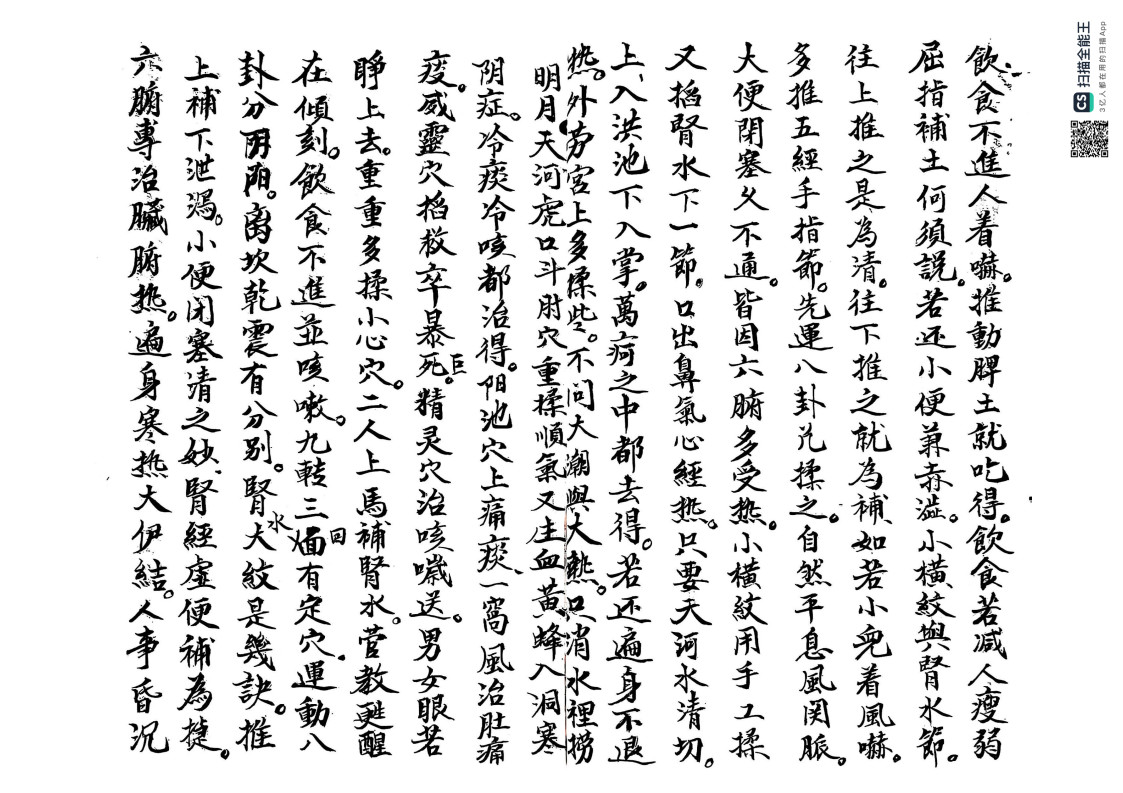 飲食不進人着嚇。推動脾土就吃得。飲食若減人瘦弱
屈指補土何須説。若还小便兼赤澁。小橫紋與腎水節。
往上推之是為清。往下推之就為補。如若小兒着風嚇。
多推五經手指節。先運八卦光揉之。自然平息風関脈。
大便閉塞久不通。皆因六腑多受热。小橫紋用手工揉
又掐腎水下一節。口出鼻氣心經热。只要天河水清切。
上、入洪池下入掌。萬疴之中都去得。若还遍身不退
热。外劳宮上多揉些。不问大潮與大熱。只消水裡撈
明月天河虎口斗肘穴重揉順氣又生血黃蜂入洞寒
阴症。冷痰冷咳都治得。阳池穴上痛痰、一窩風治肚痛
疫。威靈穴掐救卒暴死。精灵穴治咳嗽送。男女眼若
巨
睁上去。重重多揉小心穴。二人上馬補腎水。菅教甦醒
在傾刻。飲食不進並咳嗽。九転三回有定穴。運動八
卦分阴阳。离坎乾震有分別。腎水大紋是幾訣。推
上補下泄瀉。小便闭塞清之妙、腎經虚便補為㨗。
六腑專治臟腑热。遍身寒热大伊結。人事昏沉
CS 扫描全能王
3亿人都在用的扫描App